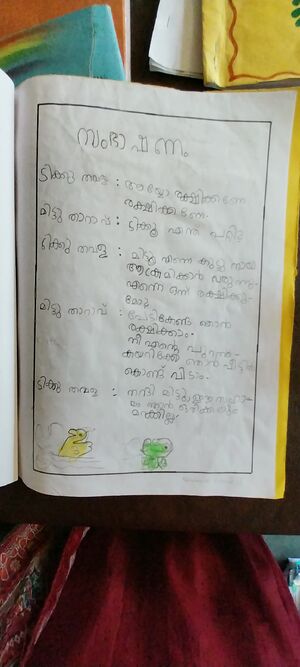 സംഭാഷണം
ടിക്കു തവള : അയ്യോ രക്ഷിക്കണേ
രക്ഷിക്കണേ.
മിട്ടു താറാവ് : ടിക്കൂ എന്ത് പറ്റി
ടിക്കു തവള : മിട്ടു എന്നെ
ആക്രമിക്കാൻ വരുന്നു.
എന്നെ ഒന്ന് രക്ഷിക്കു-
മോ
മിട്ടു താറാവ് : പേടിക്കേണ്ട ഞാൻ
രക്ഷിക്കാം.
നീ എന്റെ പുറത്ത്
കയറിക്കോ ഞാൻ വീട്ടിൽ
കൊണ്ട് വിടാം.
ടിക്കു തവള : നന്ദി മിട്ടു ഈ സഹാ-
യം ഞാൻ ഒരിക്കലും
മറക്കില്ല